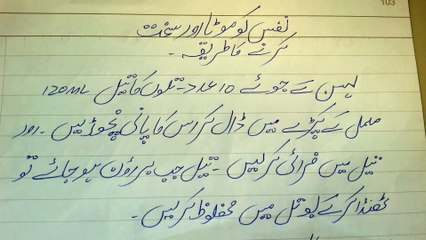 103
نفس کو موٹا اور سخت
کرنے کا طریقہ۔
لہسن کے جوئے 10 عدد۔ تلوں کا تیل 120ML
ململ کے کپڑے میں ڈال کر اس کا پانی نچوڑ لیں۔ اور
تیل میں فرائی کر لیں۔ تیل جب براؤن ہو جائے تو
ٹھنڈا کر کے بوتل میں محفوظ کر لیں۔